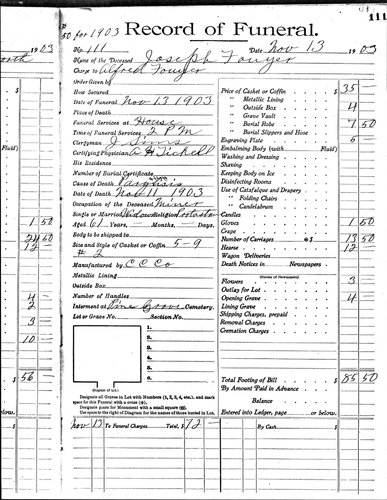 111
50 for 1903
Record of Funeral.
1903
No. 111
Date Nov 13 1903
Name of the Deceased Joseph Fouyer
Charge to Alfred Fouyer
Order Given by
How Secured
Date of Funeral Nov 13 1903
Place of Death
Funeral Services at House
Time of Funeral Services 2 PM
Clergyman J Sims
Certifying Physician A H Tickell
His Residence
Number of Burial Certificate
Cause of Death
Date of Death Nov 11 1903
Occupation of the Deceased Miner
Single or Married Widow Religion Protestant
Aged 61 Years, Months, Days.
Body to be shipped to
Size and Style of Casket or Coffin 5-9
# 2
Manufactured by C C Co
Metallic Lining
Outside Box
Number of Handles
Interment at Pine Grove Cemetery.
Lot or Grave No. Section No.
1.
2.
3.
4.
5.
6.
(Diagram of Lot.)
Designate all Graves in Lot with Numbers (1, 2, 3, 4, etc.), and mark
space for this Funeral with a cross (+).
Designate place for Monument with a small square.
Use space to the right of Diagram for the names of those buried in Lot.
Price of Casket or Coffin $ 35 —
" Metallic Lining
" Outside Box 4
" Grave Vault
" Burial Robe 7 50
" Burial Slippers and Hose
Engraving Plate
Embalming Body (with Fluid)
Washing and Dressing
Shaving
Keeping Body on Ice
Disinfecting Rooms
Use of Catafalque and Drapery
" Folding Chairs
" Candelabrum
Candles
Gloves 1 50
Crape
Number of Carriages @ $ 13 50
Hearse 12 —
Wagon Deliveries
Death Notices in Newspapers
Flowers 3
Outlay for Lot
Opening Grave 4
Lining Grave
Shipping Charges, prepaid
Removal Charges
Cremation Charges
Total Footing of Bill $ 85 50
By Amount Paid in Advance
Balance
Entered into Ledger, page or below.
Nov 13 To Funeral Charges Total, $ 12 — By Cash $
Fluid)
1 50
24 50
12 —
4
2
3
10 —
$ 56 —
below.
$